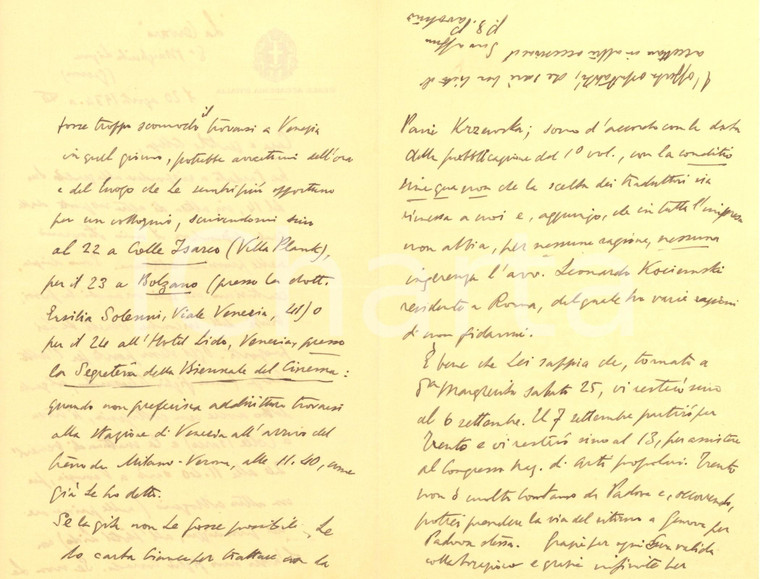 forse troppo scomodo il trovarsi a Venezia
in quel giorno, potrebbe avvertirmi dell'ora
e del luogo che Le sembri più opportuno
per un colloquio, scrivendomi sino
al 22 a Colle Isarco (Villa Plank),
per il 23 a Bolzano (presso la dott.
Ersilia Solenni, Viale Venezia, 41) o
per il 24 all'Hotel Lido, Venezia, presso
la Segreteria della Biennale del Cinema:
quando non preferisca addirittura trovarsi
alla stazione di Venezia all'arrivo del
treno da Milano-Verona, alle 11.40, come
già Le ho detto.
Se la gita non Le fosse possibile, Le
do carta bianca per trattare con la
l'offerta ospitalità, che sarà ben lieto di
accettare in altra occasione.
P.S.
Pavie Krzewska; sono d'accordo con la data
della pubblicazione del 1° vol., con la conditio
sine qua non che la scelta dei traduttori sia
rimessa a noi e, aggiungo, che in tutta l'impresa
non abbia, per nessuna ragione, nessuna
ingerenza l'avv. Leonardo Kociemski
residente a Roma, del quale ho varie ragioni
di non fidarmi.
È bene che Lei sappia che, tornato a
S. Margherita sabato 25, vi resterò sino
al 6 settembre. Il 7 settembre partirò per
Trento e vi resterò sino al 13, per assistere
al Congresso Naz. di Arti popolari. Trento
non è molto lontano da Padova e, occorrendo,
potrei prendere la via del ritorno a Genova per
Padova stessa. Grazie per ogni Sua valida
collaborazione e grazie infinite per